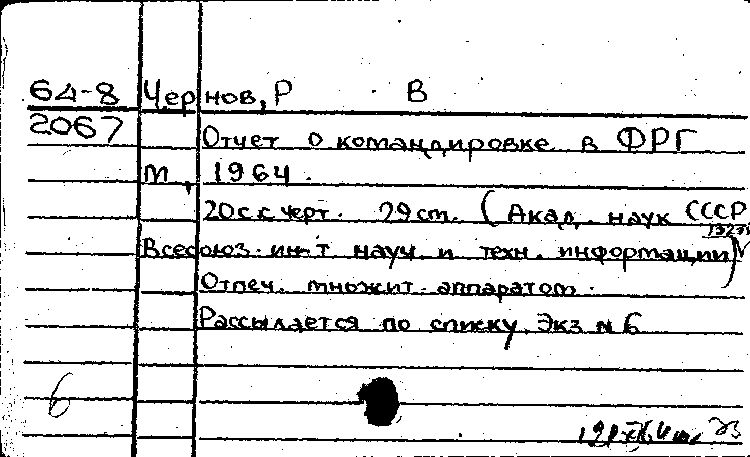 64-8 Чернов, Р В
2067 Отчет о командировке в ФРГ
М, 1964.
20с с черт. 29см. (Акад. наук СССР
Всесоюз. ин-т науч. и техн. информации)
Отпеч. множит. аппаратом.
Рассылается по списку. Экз N 6
6